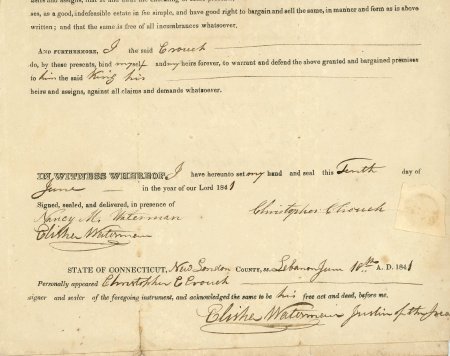 ses, as a good, indefeasible estate in fee simple, and have good right to bargain and sell the same, in manner and form as is above
written; and that the same is free of all incumbrances whatsoever.
AND FURTHERMORE, I the said Crouch
do, by these presents, bind myself and my heirs forever, to warrant and defend the above granted and bargained premises
to him the said King his
heirs and assigns, against all claims and demands whatsoever.
IN WITNESS WHEREOF, I have hereunto set my hand and seal this Tenth day of
June in the year of our Lord 1841
Signed, sealed, and delivered, in presence of
Nancy M. Waterman
Christopher Crouch
Elisher Waterman
STATE OF CONNECTICUT, New London COUNTY, ss. Lebanon June 10th A. D. 1841
Personally appeared Christopher C Crouch
signer and sealer of the foregoing instrument, and acknowledged the same to be his free act and deed, before me.
Elisher Waterman Justice of the